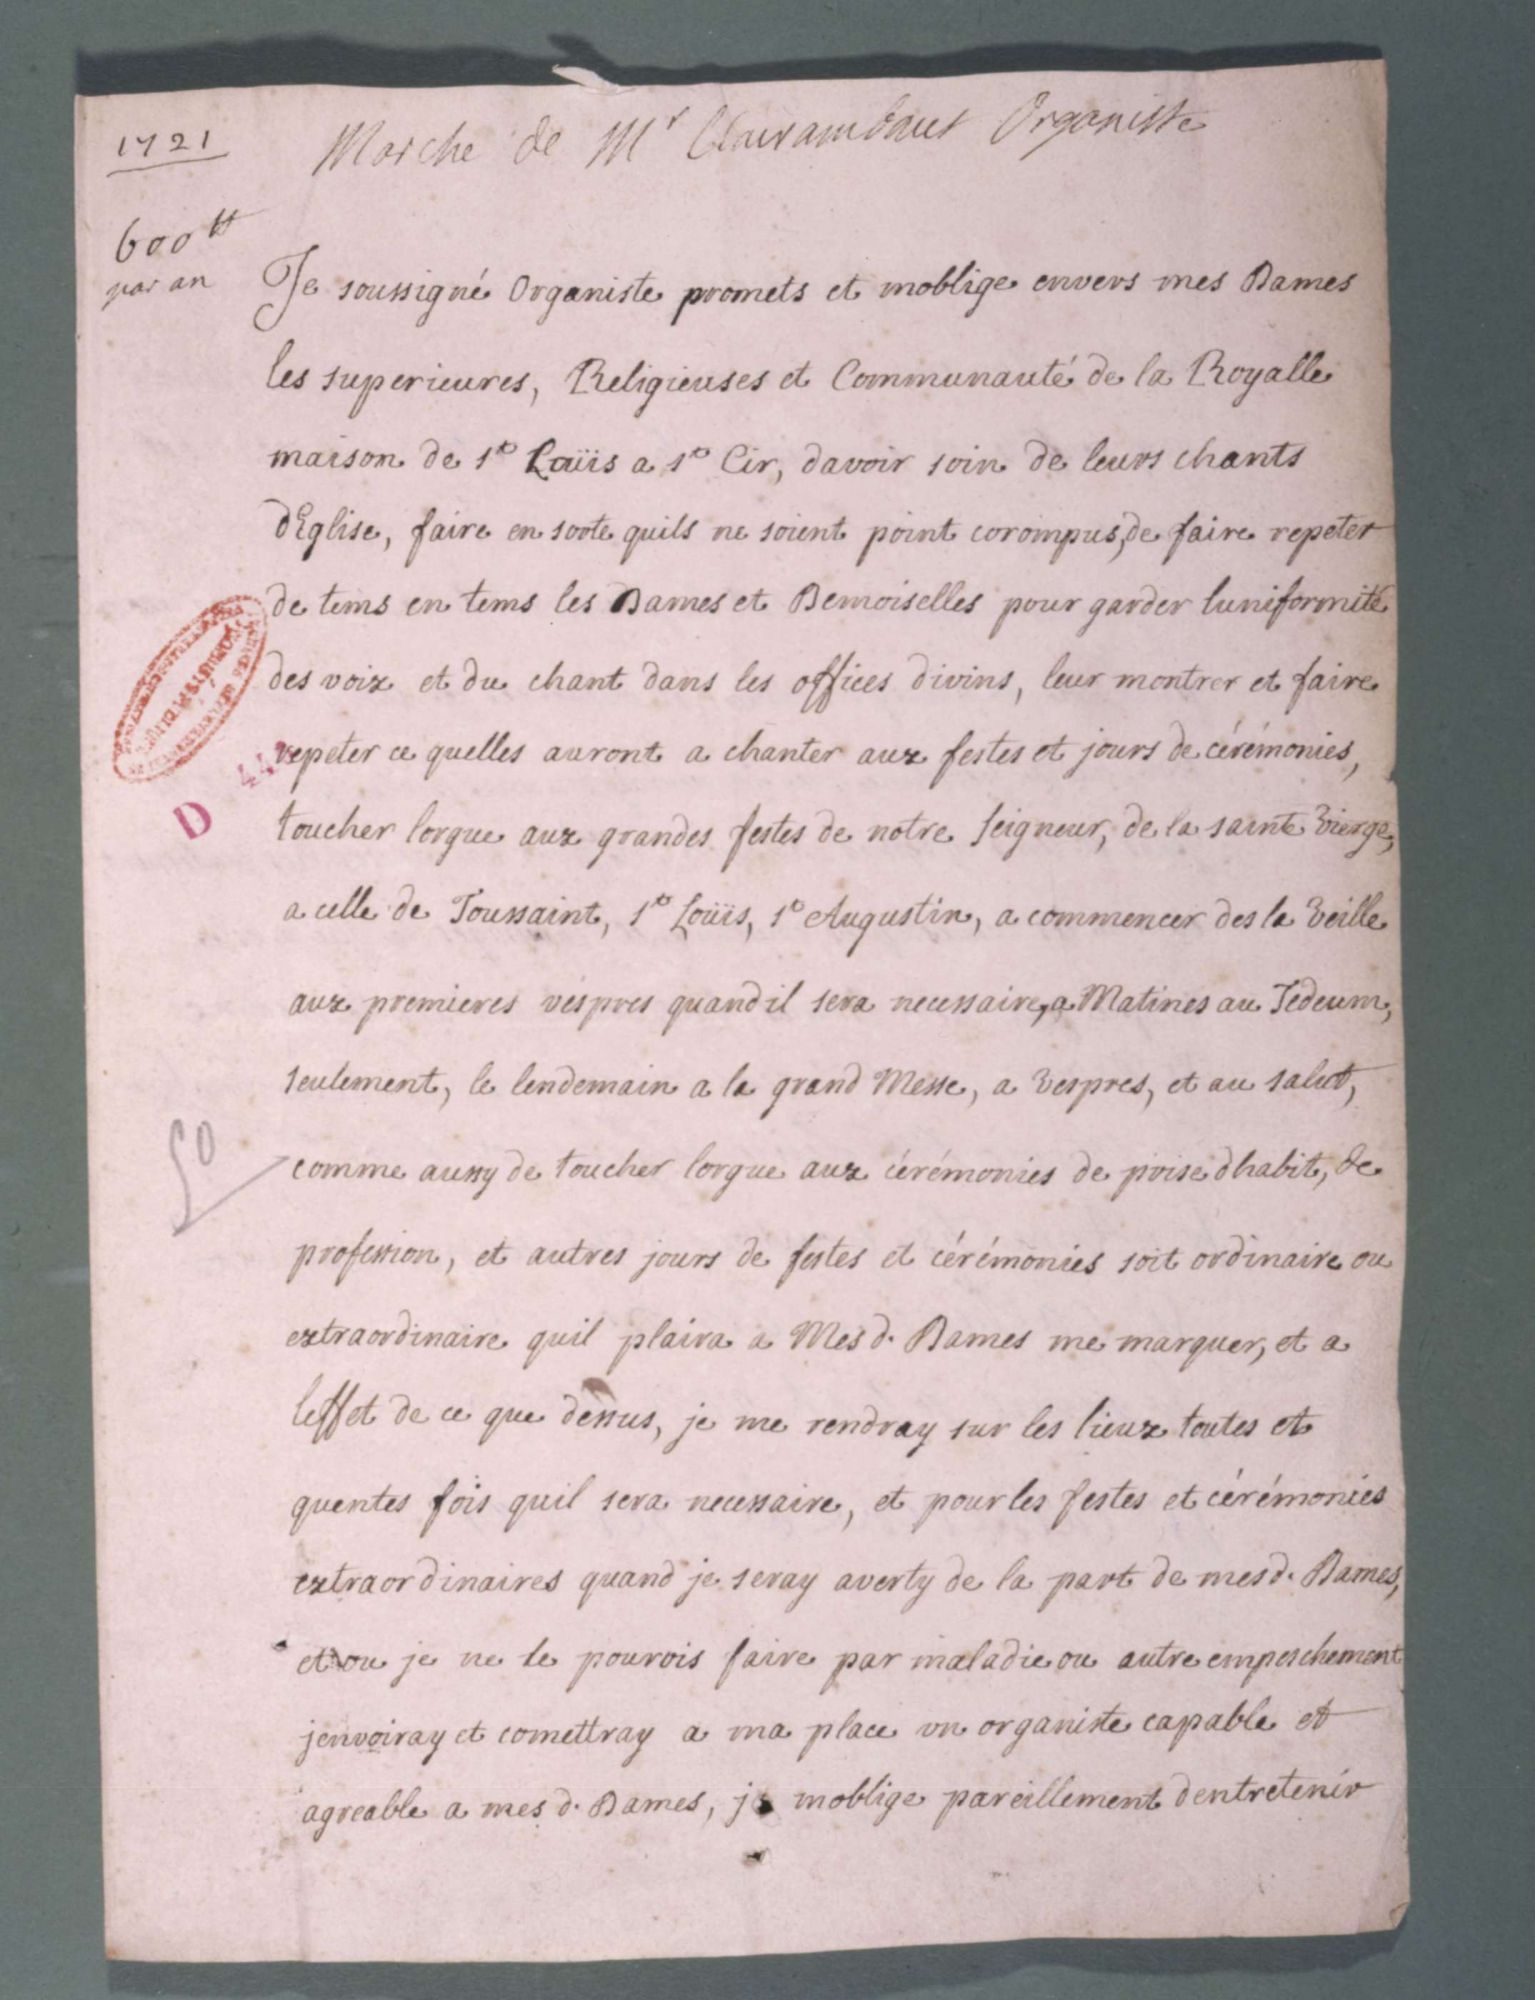 1721
Marché de Mr Clairambaut Organiste
600tt
par an
Je soussigné Organiste promets et moblige envers mes Dames
les superieures, Religieuses et Communauté de la Royalle
maison de St Loüis a St Cir, davoir soin de leurs chants
dEglise, faire en sorte quils ne soient point corompus, de faire repeter
de tems en tems les Dames et Demoiselles pour garder luniformité
des voix et du chant dans les offices divins, leur montrer et faire
repeter ce quelles auront a chanter aux festes et jours de cérémonies,
toucher lorgue aux grandes festes de notre seigneur, de la sainte Vierge,
D
a celle de Toussaint, St Loüis, St Augustin, a commencer des la Veille
aux premieres vespres quand il sera necessaire, a Matines au Tedeum,
seulement, le lendemain a la grand Messe, a Vespres, et au salut,
comme aussy de toucher lorgue aux cérémonies de prise dhabit, de
profession, et autres jours de festes et cérémonies soit ordinaire ou
extraordinaire quil plaira a Mesd. Dames me marquer, et a
leffet de ce que dessus, je me rendray sur les lieux toutes et
quentes fois quil sera necessaire, et pour les festes et cérémonies
extraordinaires quand je seray averty de la part de mesd. Dames,
et ou je ne le pourois faire par maladie ou autre empeschement
jenvoiray et comettray a ma place un organiste capable et
agreable a mesd. Dames, je moblige pareillement dentretenir